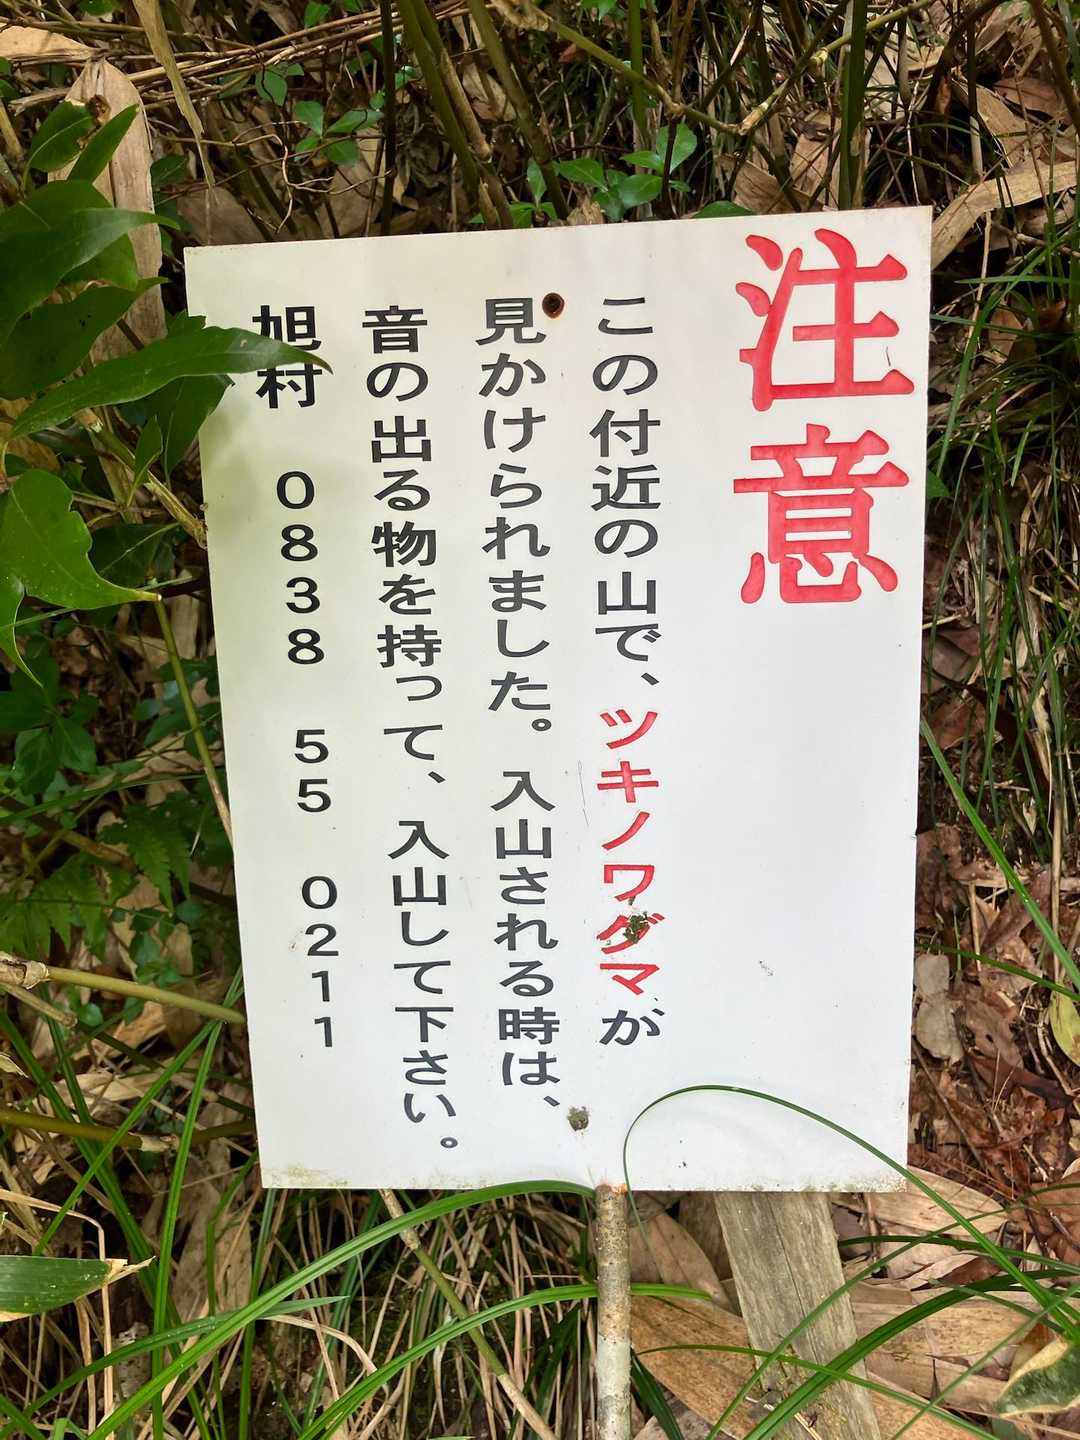 注意
この付近の山で、ツキノワグマが
見かけられました。入山される時は、
音の出る物を持って、入山して下さい。
旭村　0838　55　0211